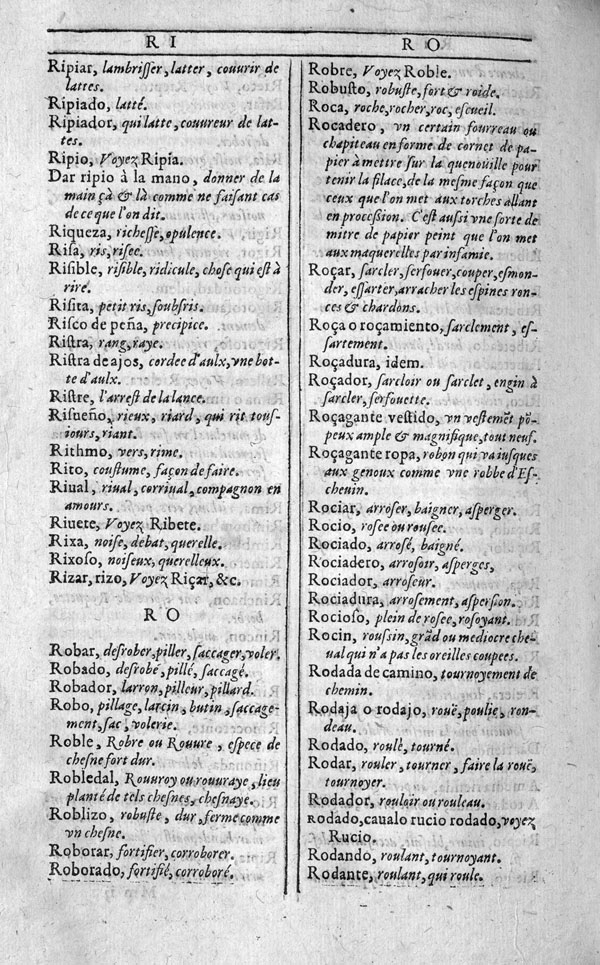 RI
Ripiar, lambriſſer, latter, couurir de
lattes.
Ripiado, latté.
Ripiador, qui latte, couureur de lat-
tes.
Ripio, Voyez Ripia.
Dar ripio à la mano, donner de la
main çà & là comme ne faiſant cas
de ce que l'on dit.
Riqueza, richeſſe, opulence.
Riſa, ris, riſee.
Riſible, riſible, ridicule, choſe qui eſt à
rire.
Riſita, petit ris, ſoubſris.
Riſco de peña, precipice.
Riſtra, rang, raye.
Riſtra de ajos, cordee d'aulx, vne bot-
te d'aulx.
Riſtre, l'arreſt de la lance.
Riſueño, rieux, riard, qui rit touſ-
iours, riant.
Rithmo, vers, rime.
Rito, couſtume, façon de faire.
Riual, riual, corriual, compagnon en
amours.
Riuete, Voyez Ribete.
Rixa, noiſe, debat, querelle.
Rixoſo, noiſeux, querelleux.
Rizar, rizo, Voyez Riçar, &c.
RO
Robar, deſrober, piller, ſaccager, voler.
Robado, deſrobé, pillé, ſaccagé.
Robador, larron, pilleur, pillard.
Robo, pillage, larcin, butin, ſaccage-
ment, ſac, volerie.
Roble, Robre ou Rouure, eſpece de
cheſne fort dur.
Robledal, Rouuroy ou rouuraye, lieu
planté de tels cheſnes, cheſnaye.
Roblizo, robuſte, dur, ferme comme
vn cheſne.
Roborar, fortifier, corroborer.
Roborado, fortifié, corroboré.
RO
Robre, Voyez Roble.
Robuſto, robuſte, fort & roide.
Roca, roche, rocher, roc, eſcueil.
Rocadero, vn certain fourreau ou
chapiteau en forme de cornet de pa-
pier à mettre ſur la quenoüille pour
tenir la filace, de la meſme façon que
ceux que l'on met aux torches allant
en proceſsion. C'eſt auſsi vne ſorte de
mitre de papier peint que l'on met
aux maquerelles par infamie.
Roçar, ſarcler, ſerfouer, couper, eſmon-
der, eſſarter, arracher les eſpines ron-
ces & chardons.
Roça o roçamiento, ſarclement, eſ-
ſartement.
Roçadura, idem.
Roçador, ſarcloir ou ſarclet, engin à
ſarcler, ſerfouette.
Roçagante veſtido, vn veſtemẽt põ-
peux ample & magnifique, tout neuf.
Roçagante ropa, robon qui va iuſques
aux genoux comme vne robbe d'Eſ-
cheuin.
Rociar, arroſer, baigner, aſperger.
Rocio, roſee ou rouſee.
Rociado, arroſé, baigné.
Rociadero, arroſoir, aſperges,
Rociador, arroſeur.
Rociadura, arroſement, aſperſion.
Rocioſo, plein de roſee, roſoyant.
Rocin, rouſſin, grãd ou mediocre che-
ual qui n'a pas les oreilles coupees.
Rodada de camino, tournoyement de
chemin.
Rodaja o rodajo, rouë, poulie, ron-
deau.
Rodado, roulé, tourné.
Rodar, rouler, tourner, faire la rouë,
tournoyer.
Rodador, rouloir ou rouleau.
RODADO, caualo rucio rodado, voyez
Rucio.
Rodando, roulant, tournoyant.
Rodante, roulant, qui roule.